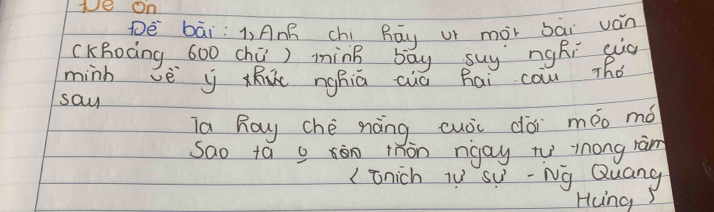 Đề ôn
Đề bài: 1, Anh chị hãy vt một bài văn
(Khoảng 600 chữ) trình bày suy nghĩ của
mình về ý nghĩa của hai câu thơ
sau
Ta hay chê rằng cuộc đời méo mó
Sao ta o tròn ngay từ trong tâm
(trích tự sự - Ng Quang
Hưng)